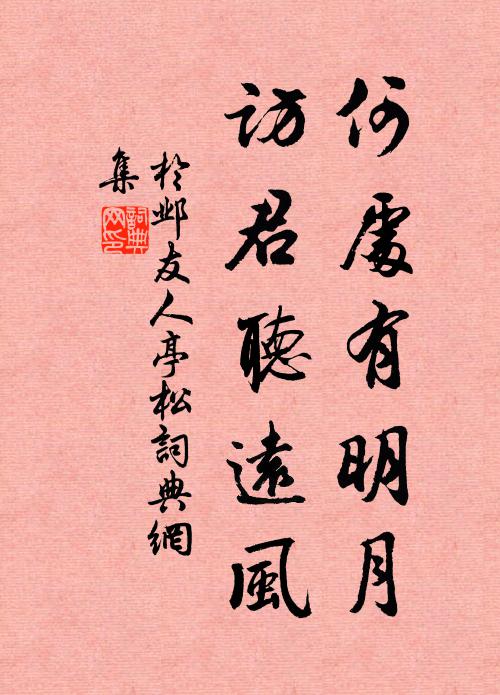 何處有明月
訪君聽遠風
於鄴友人亭松詞典網
集
詞典
网印